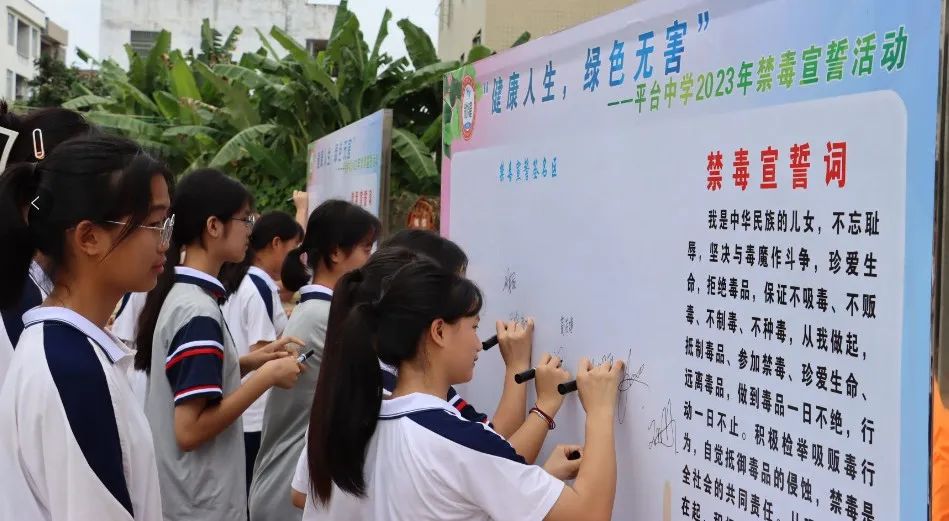 “健康人生，绿色无害”
——平台中学2023年禁毒宣誓活动
禁毒宣誓签名区
禁毒宣誓词
我是中华民族的儿女，不忘耻
辱，坚决与毒魔作斗争，珍爱生
命，拒绝毒品，保证不吸毒、不贩
毒、不制毒、不种毒，从我做起，
抵制毒品、参加禁毒、珍爱生命、
远离毒品，做到毒品一日不绝，行
动一日不止。积极检举吸贩毒行
为，自觉抵御毒品的侵蚀，禁毒是
全社会的共同责任。从
在起，积